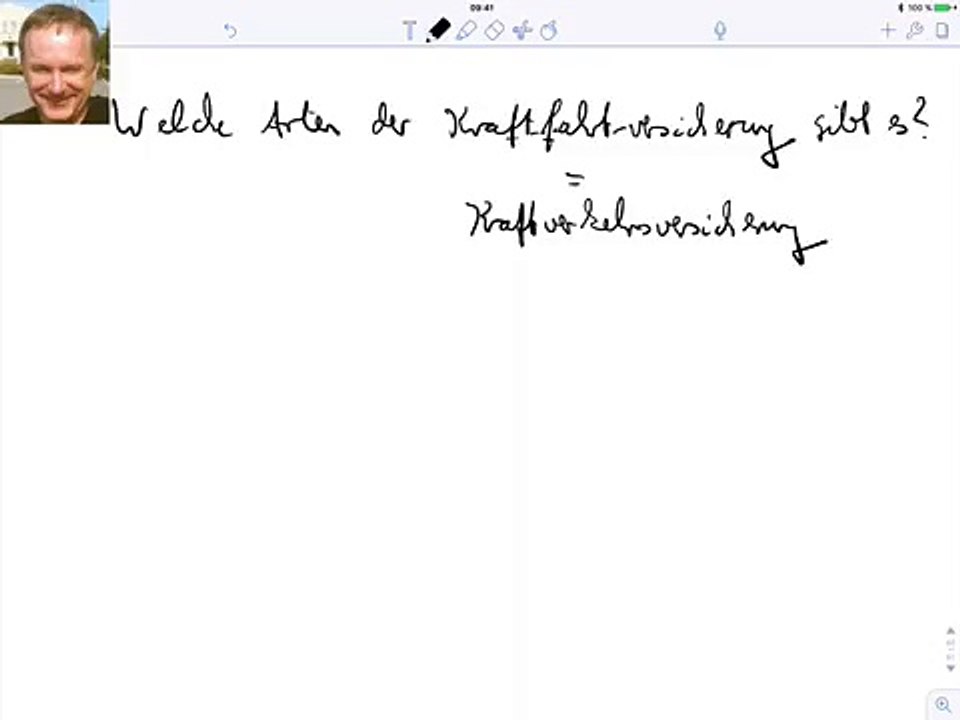 09:41
100 %
T
Welche Arten der Kraftfahrtversicherung gibt es?
=
Kraftverkehrsversicherung